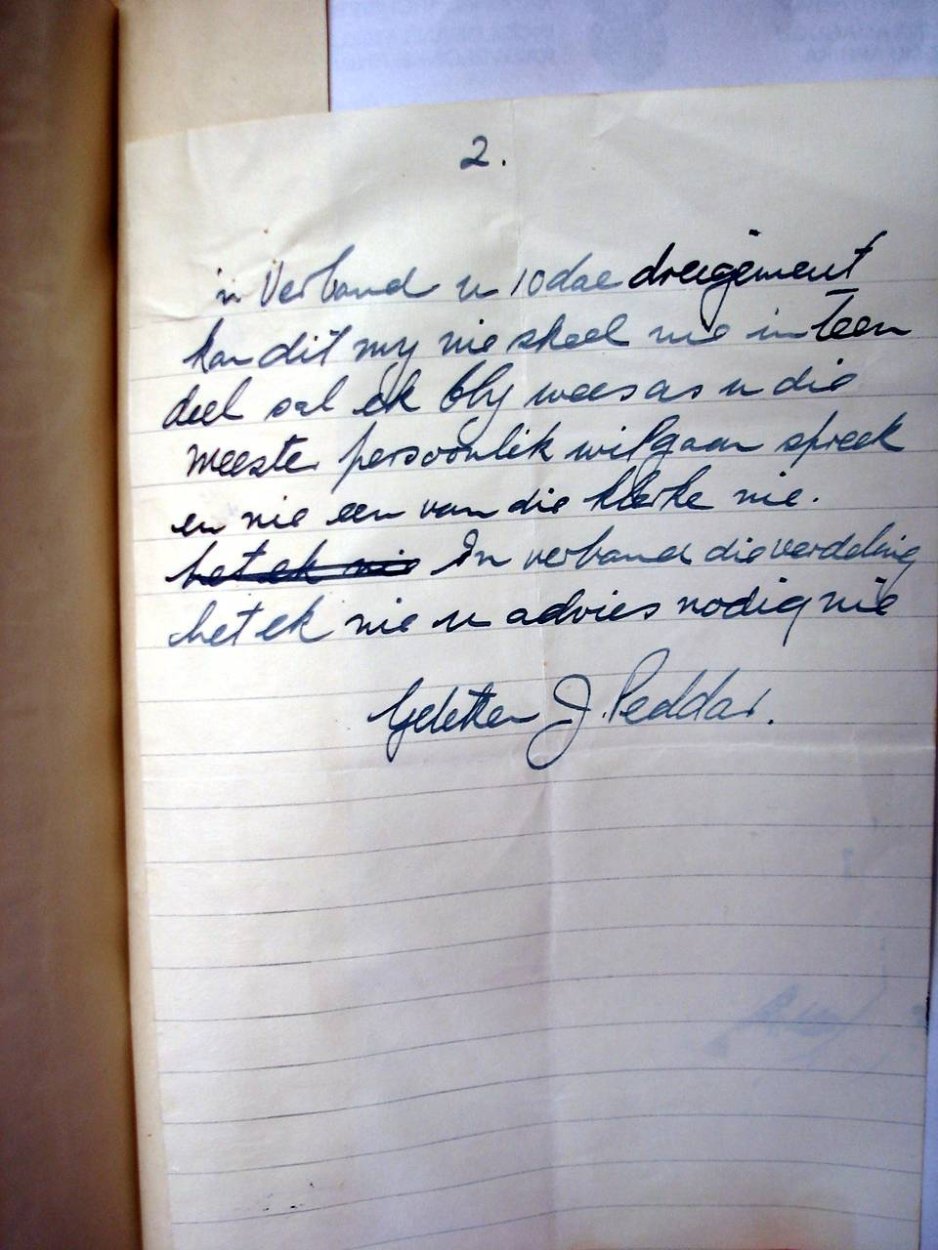 2.
in Verband u 10 dae dreigement
kan dit my nie skeel nie in teen
deel sal ek bly wees as u die
meester persoonlik wil gaan spreek
en nie een van die klerke nie.
het ek nie In verband die verdeling
het ek nie u advies nodig nie
J. Peddar.